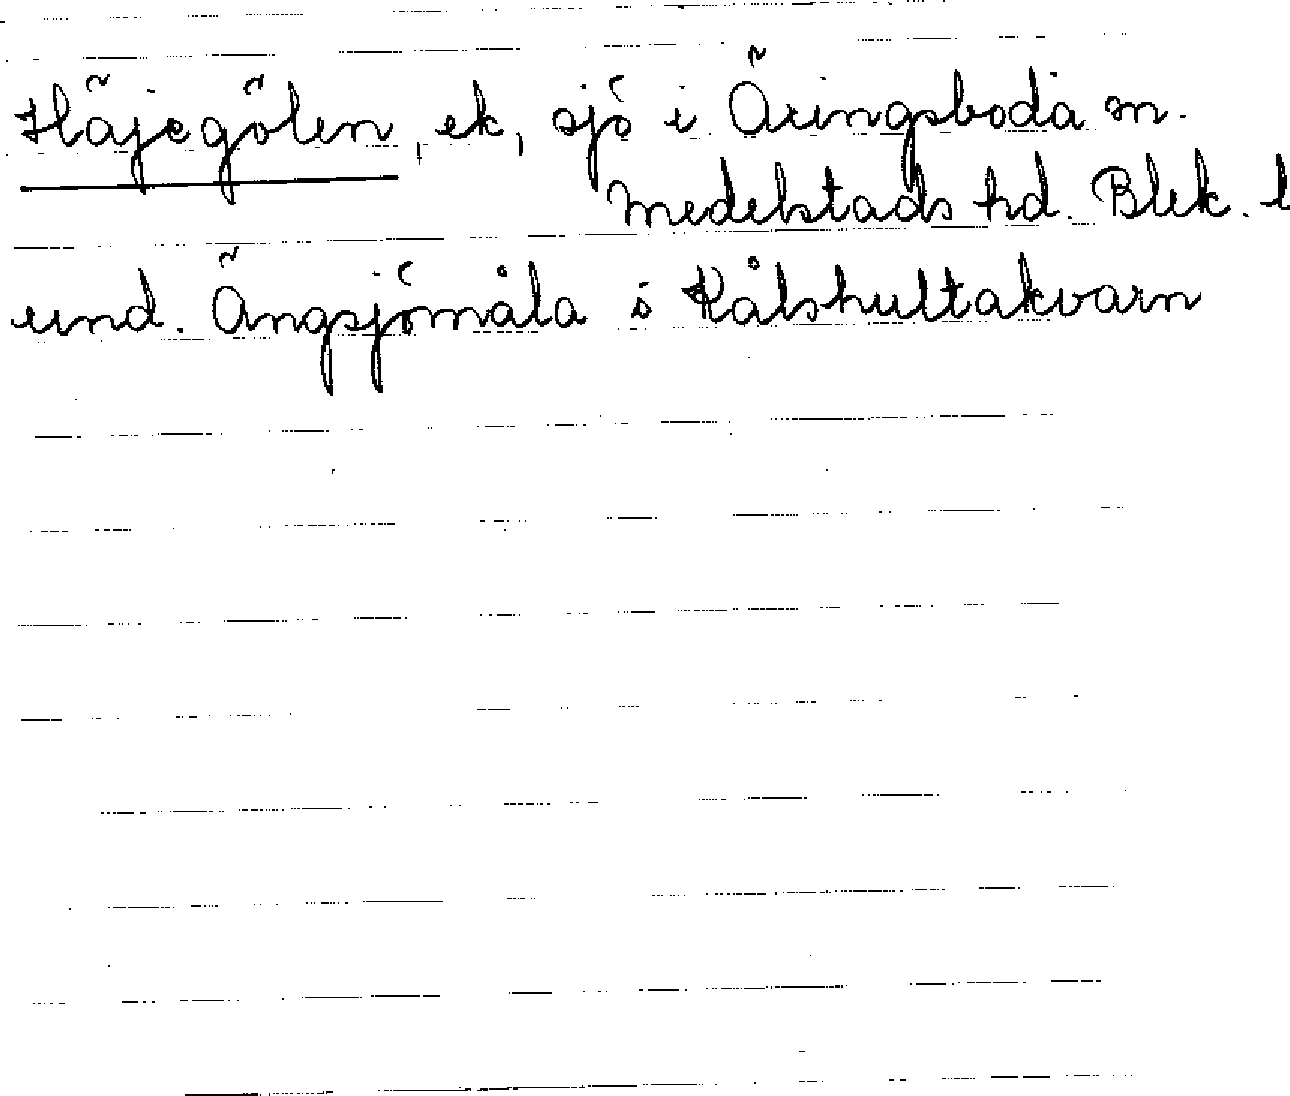 Häjegölen, ek, sjö i Äringsboda sn.
Medelstads hd. Blek. l
und. Ängsjömåla o Kålshultakvarn